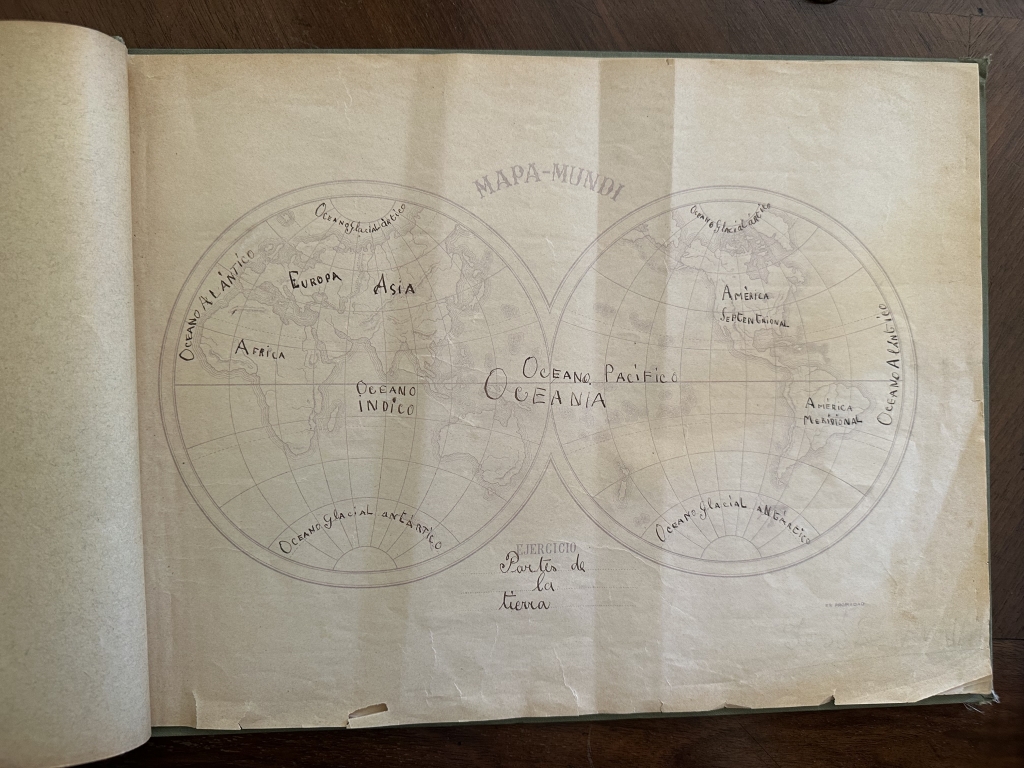 MAPA-MUNDI
Oceano glacial ártico
Oceano Alántico
Europa
Asia
Africa
Oceano
Indico
Oceano glacial antártico
Oceano Pacífico
Oceania
Oceano glacial ártico
América
Septentrional
América
Meridional
Oceano Alántico
Oceano glacial antártico
EJERCICIO
Partes de
la
tierra